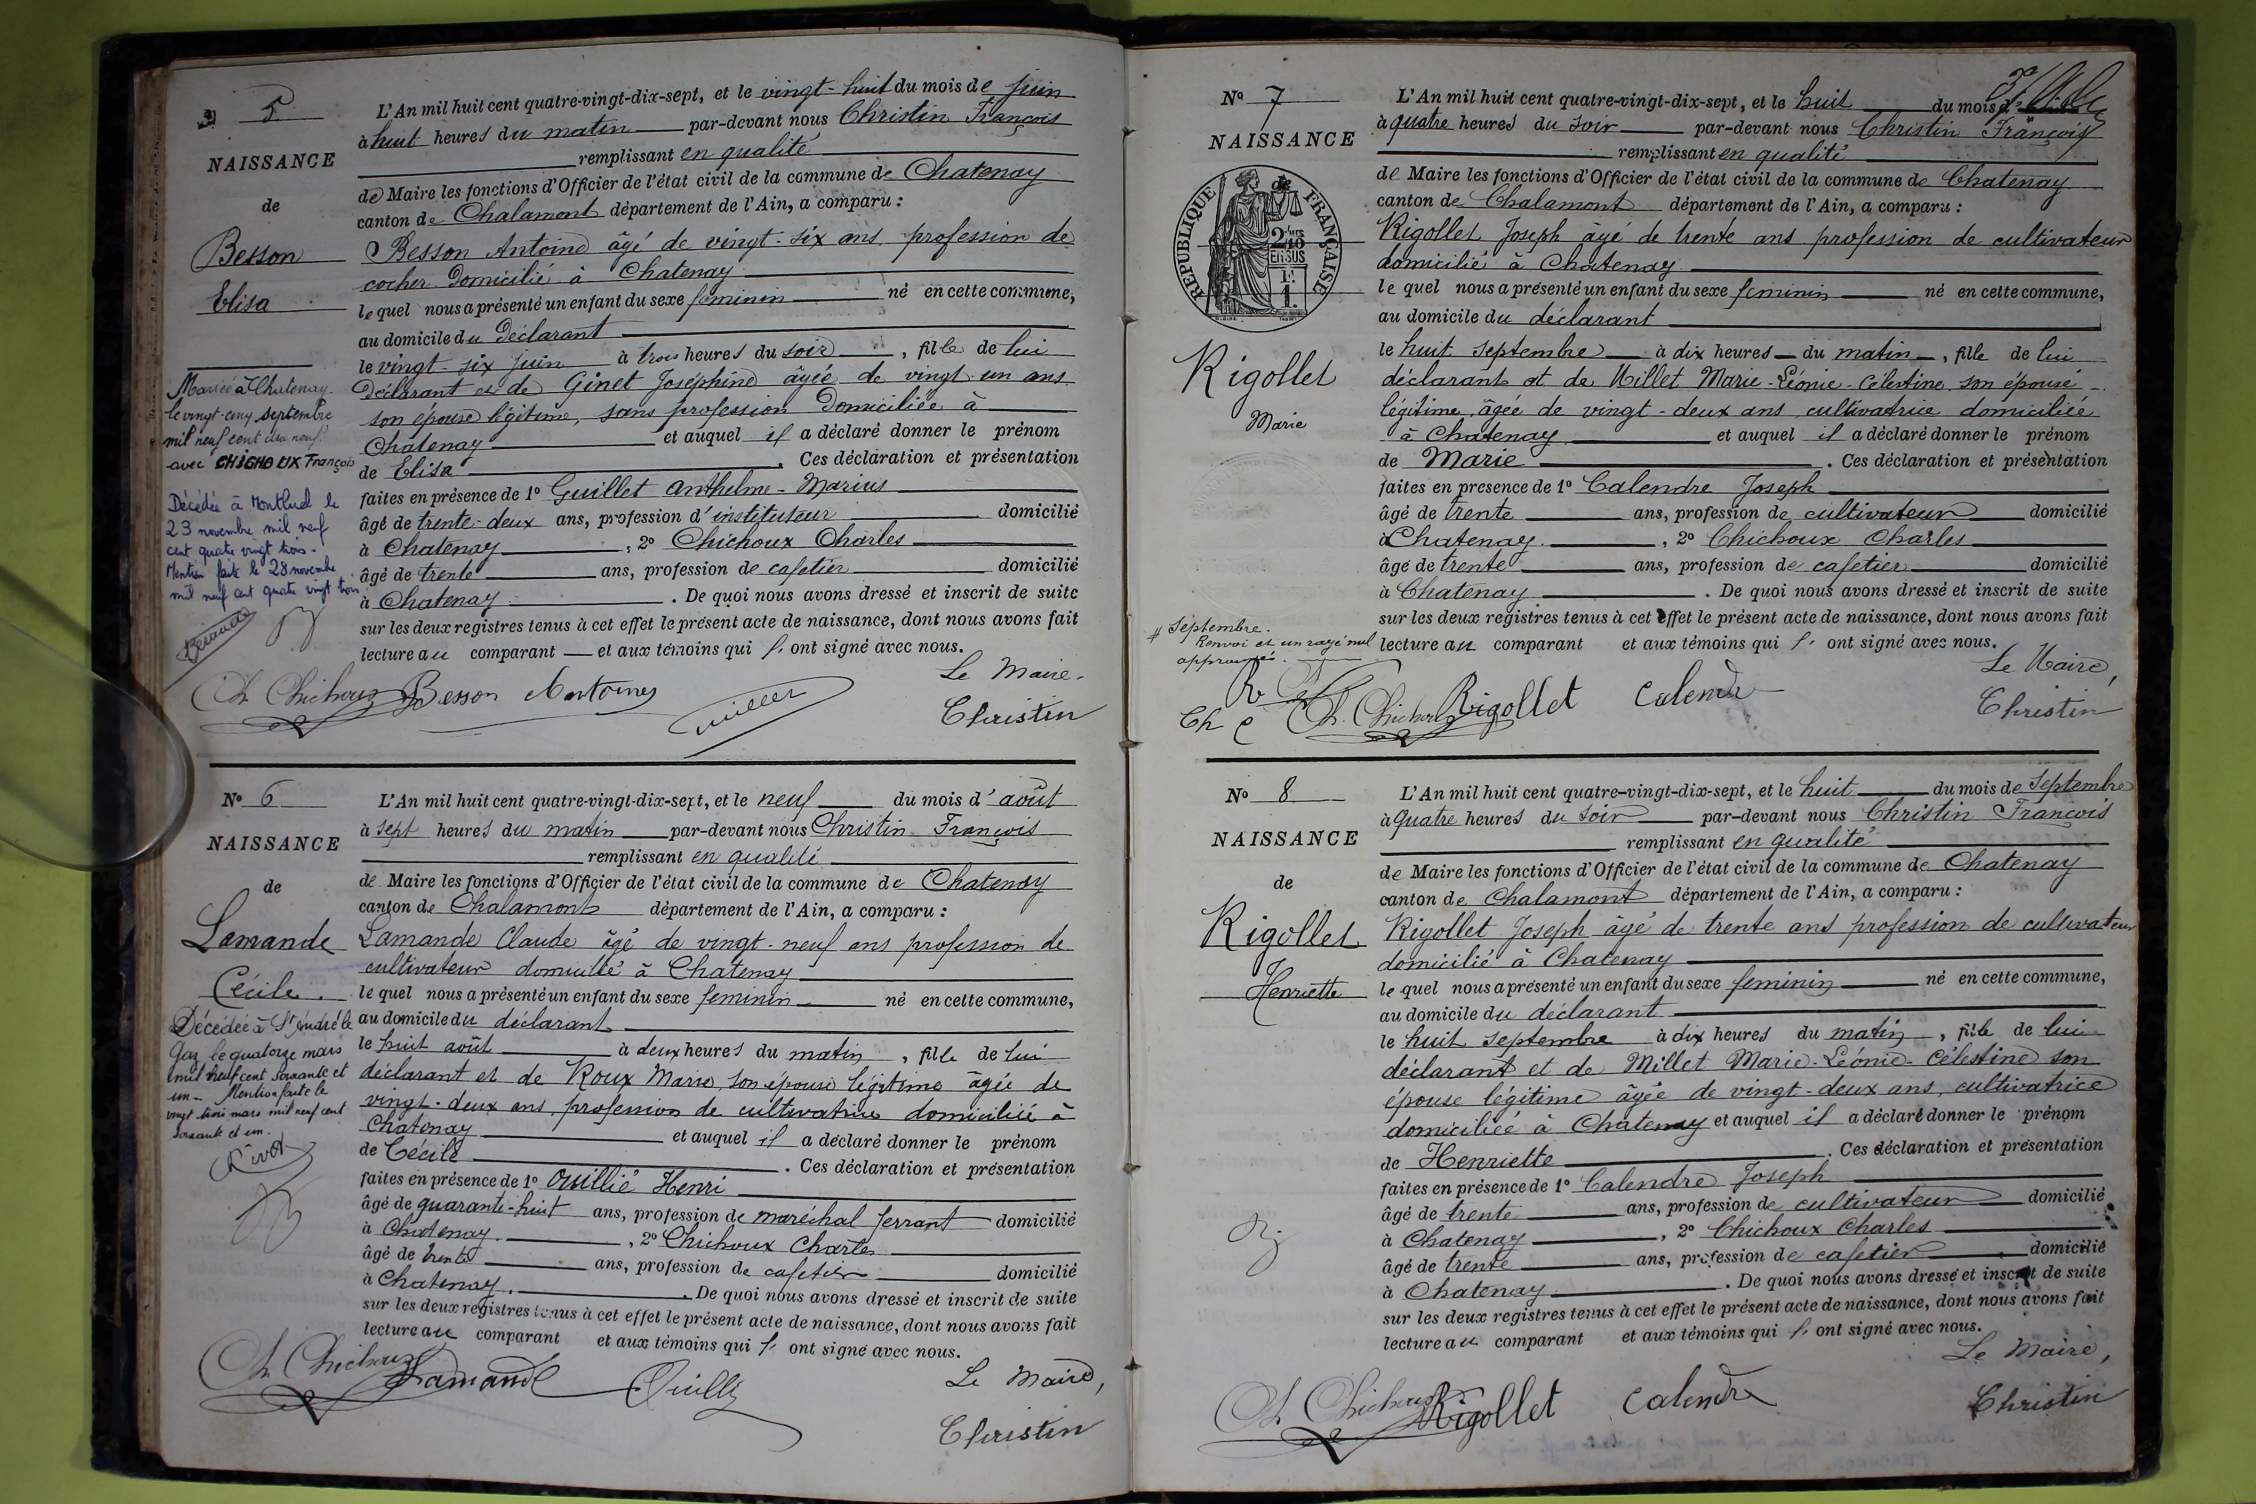 5
NAISSANCE
de
Besson
Elisa
Mariée à Chatenay
le vingt-cinq septembre
mil neuf cent dix neuf
avec CHICHOUX François
Décédée à Montluel le
23 novembre mil neuf
cent quatre vingt trois -
Mention faite le 28 novembre
mil neuf cent quatre vingt trois
L'An mil huit cent quatre-vingt-dix-sept, et le vingt-huit du mois de juin
à huit heures du matin par-devant nous Christin François
remplissant en qualité
de Maire les fonctions d'Officier de l'état civil de la commune de Chatenay
canton de Chalamont département de l'Ain, a comparu :
Besson Antoine âgé de vingt-six ans profession de
cocher Domicilié à Chatenay
le quel nous a présenté un enfant du sexe féminin né en cette commune,
au domicile du Déclarant
le vingt-six juin à trois heures du soir, fille de lui
Déclarant et de Ginet Joséphine âgée de vingt-un ans
son épouse légitime, sans profession Domiciliée à
Chatenay et auquel il a déclaré donner le prénom
de Elisa. Ces déclaration et présentation
faites en présence de 1º Guillet Anthelme-Marius
âgé de trente-deux ans, profession d'instituteur domicilié
à Chatenay, 2º Chichoux Charles
âgé de trente ans, profession de cafetier domicilié
à Chatenay. De quoi nous avons dressé et inscrit de suite
sur les deux registres tenus à cet effet le présent acte de naissance, dont nous avons fait
lecture au comparant et aux témoins qui l' ont signé avec nous.
Le Maire.
Ch. Chichoux Besson Antoine Guillet Christin
Nº 6
NAISSANCE
de
Lamande
Cécile.
Décédée à St André le
Gaz le quatorze mars
mil neuf cent soixante et
un - Mention faite le
vingt trois mars mil neuf cent
soixante et un.
L'An mil huit cent quatre-vingt-dix-sept, et le neuf du mois d'août
à sept heures du matin par-devant nous Christin François
remplissant en qualité
de Maire les fonctions d'Officier de l'état civil de la commune de Chatenay
canton de Chalamont département de l'Ain, a comparu :
Lamande Claude âgé de vingt-neuf ans profession de
cultivateur domicilié à Chatenay
le quel nous a présenté un enfant du sexe féminin né en cette commune,
au domicile du déclarant
le huit août à deux heures du matin, fille de lui
déclarant et de Roux Marie, son épouse légitime âgée de
vingt-deux ans, profession de cultivatrice domiciliée à
Chatenay et auquel il a déclaré donner le prénom
de Cécile. Ces déclaration et présentation
faites en présence de 1º Ouillié Henri
âgé de quarante-huit ans, profession de maréchal ferrant domicilié
à Chatenay., 2º Chichoux Charles
âgé de trente ans, profession de cafetier domicilié
à Chatenay. De quoi nous avons dressé et inscrit de suite
sur les deux registres tenus à cet effet le présent acte de naissance, dont nous avons fait
lecture au comparant et aux témoins qui l' ont signé avec nous.
Le Maire,
Ch. Chichoux Lamande Christin
Nº 7
NAISSANCE
de
REPUBLIQUE FRANÇAISE
2/10 EN SUS
Rigollet
Marie
L'An mil huit cent quatre-vingt-dix-sept, et le huit du mois d
à quatre heures du soir par-devant nous Christin François
remplissant en qualité
de Maire les fonctions d'Officier de l'état civil de la commune de Chatenay
canton de Chalamont département de l'Ain, a comparu :
Rigollet Joseph âgé de trente ans profession de cultivateur
domicilié à Chatenay
le quel nous a présenté un enfant du sexe féminin né en cette commune,
au domicile du déclarant
le huit septembre à dix heures du matin, fille de lui
déclarant et de Millet Marie-Léonie-Célestine son épouse
légitime, âgée de vingt-deux ans, cultivatrice domiciliée
à Chatenay et auquel il a déclaré donner le prénom
de Marie. Ces déclaration et présentation
faites en présence de 1º Calendre Joseph
âgé de trente ans, profession de cultivateur domicilié
à Chatenay., 2º Chichoux Charles
âgé de trente ans, profession de cafetier domicilié
à Chatenay. De quoi nous avons dressé et inscrit de suite
sur les deux registres tenus à cet effet le présent acte de naissance, dont nous avons fait
lecture au comparant et aux témoins qui l' ont signé avec nous.
# Septembre.
Renvoi et un rayé nul
approuvés.
Le Maire,
R Ch C Ch. Chichoux Rigollet Calendre Christin
Nº 8
NAISSANCE
de
Rigollet
Henriette
L'An mil huit cent quatre-vingt-dix-sept, et le huit du mois de Septembre
à quatre heures du soir par-devant nous Christin François
remplissant en qualité
de Maire les fonctions d'Officier de l'état civil de la commune de Chatenay
canton de Chalamont département de l'Ain, a comparu :
Rigollet Joseph âgé de trente ans profession de cultivateur
domicilié à Chatenay
le quel nous a présenté un enfant du sexe féminin né en cette commune,
au domicile du déclarant
le huit septembre à dix heures du matin, fille de lui
déclarant et de Millet Marie-Léonie-Célestine son
épouse légitime âgée de vingt-deux ans, cultivatrice
domiciliée à Chatenay et auquel il a déclaré donner le prénom
de Henriette. Ces déclaration et présentation
faites en présence de 1º Calendre Joseph
âgé de trente ans, profession de cultivateur domicilié
à Chatenay, 2º Chichoux Charles
âgé de trente ans, profession de cafetier domicilié
à Chatenay. De quoi nous avons dressé et inscrit de suite
sur les deux registres tenus à cet effet le présent acte de naissance, dont nous avons fait
lecture au comparant et aux témoins qui l' ont signé avec nous.
Le Maire,
Ch. Chichoux Rigollet Calendre Christin